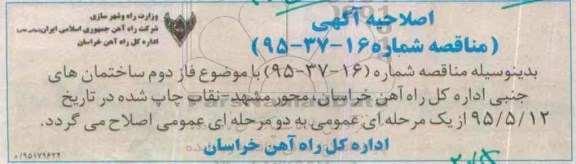 وزارت راه وشهر سازی
شرکت راه آهن جمهوری اسلامی ایران
اداره کل راه آهن خراسان
اصلاحیه آگهی
(مناقصه شماره ۱۶-۳۷-۹۵)
بدینوسیله مناقصه شماره (۱۶-۳۷-۹۵) با موضوع فاز دوم ساختمان های
جنبی اداره کل راه آهن خراسان، محور مشهد-نقاب چاپ شده در تاریخ
۹۵/۵/۱۲ از یک مرحله ای عمومی به دو مرحله ای عمومی اصلاح می گردد.
اداره کل راه آهن خراسان
۹۵۱۷۹۶۲۴/م